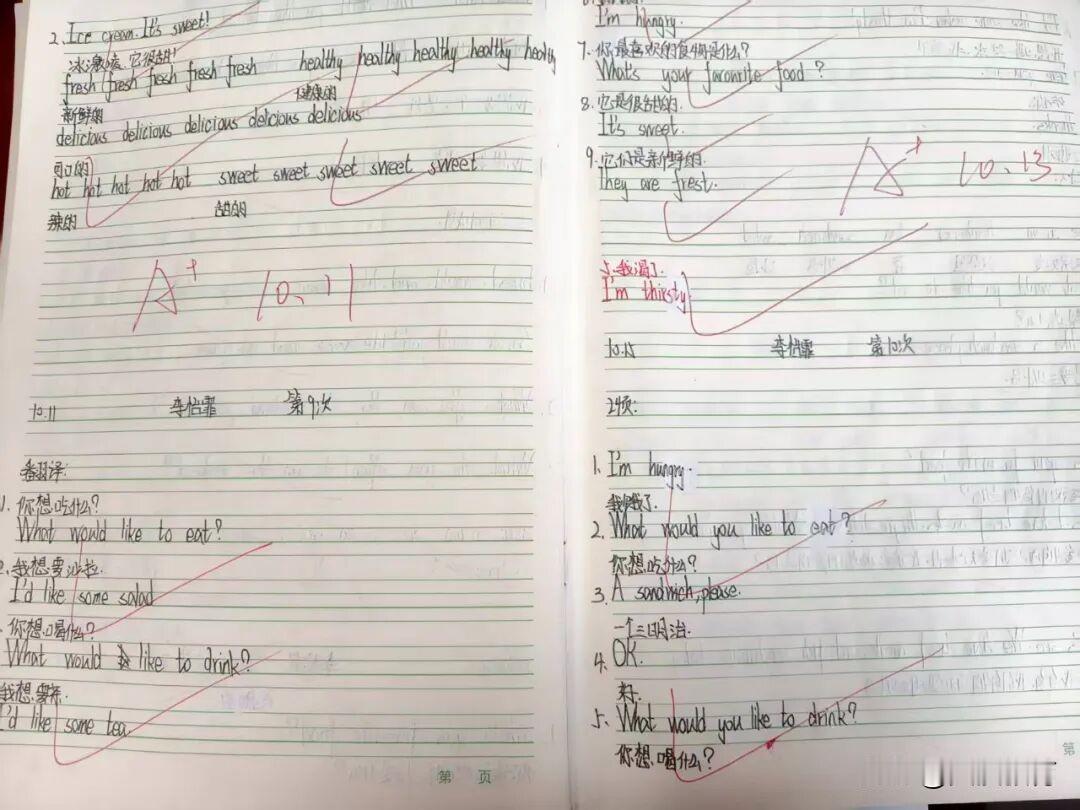 2. Ice cream. It's sweet!
冰激凌,它很甜!
fresh fresh fresh fresh fresh healthy healthy healthy healthy healthy
新鲜的 健康的
delicious delicious delicious delicious delicious
可口的
hot hot hot hot hot sweet sweet sweet sweet sweet
辣的 甜的
A+ 10.11
10.11 李怡霏 第9次
翻译:
1. 你想吃什么?
What would like to eat?
2. 我想要沙拉.
I'd like some salad
你想喝什么?
What would like to drink?
我想要茶.
I'd like some tea.
第 页
I'm hungry.
7. 你最喜欢的食物是什么?
What's your faronrite food?
8. 它是很甜的.
It's sweet.
9. 它们是新鲜的.
They are frest.
A+ 10.13
5.我渴了.
I'm thirsty
10.15 李怡霏 第10次
24页:
1. I'm hungry.
我饿了.
2. What would you like to eat?
你想吃什么?
3. A sandwich,please.
一个三明治.
4. OK.
好.
5. What would you like to drink?
你想喝什么?
第